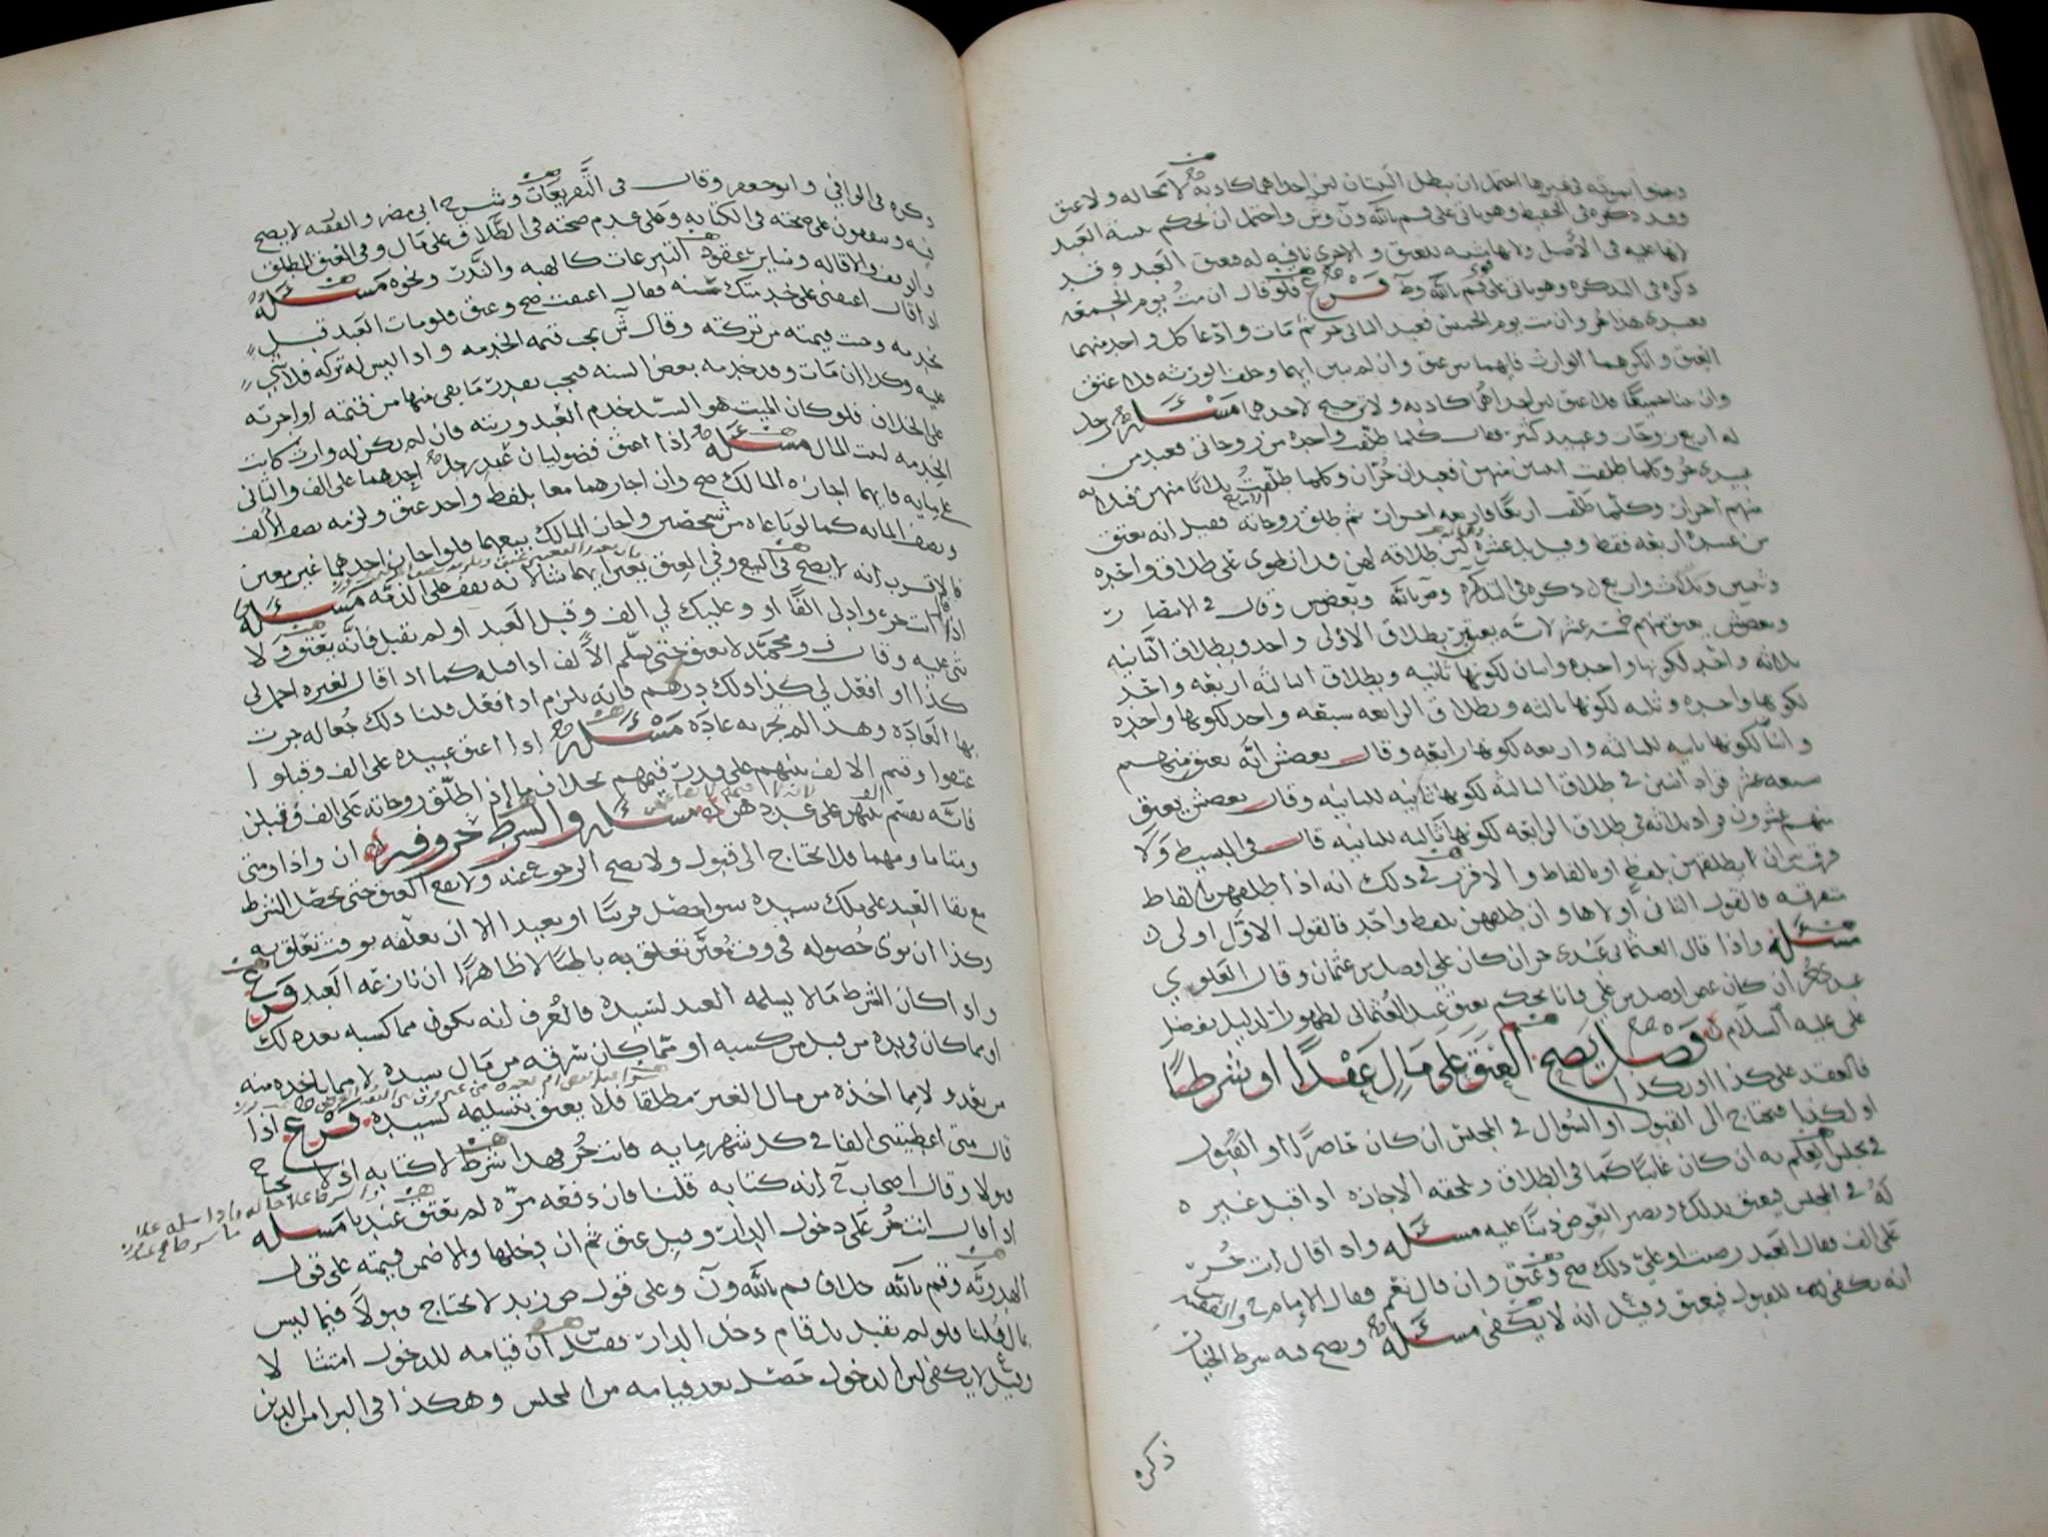 لا محاله ولا عتق
وقد ذكره في الحفيظ وهو ياتي على قسم بالله وان وش واحتمل ان يحكم بينة العبد
لانها عليه في الأصل ولانها مثبته للعتق والاخرى نافيه له فيعتق العبد وقد
ذكره في التذكره وهو ياتي على قسم بالله وط فرع فلو قال ان مت يوم الجمعه
فعبدي هذا حر وان مت يوم الخميس فعبدي الثاني حر ثم مات وادعا كل واحد منهما
العتق وانكرهما الوارث فايهما بين عتق وان لم يبين ايهما وحلف الورثه فلا عتق
وان بينا جميعًا فلا عتق لان احداهما كاذبه ولا ترجيح لاحدهما مسئله رجل
له اربع زوجات وعبيد كثير فقال كلما طلقت واحده من زوجاتي فعبد من
عبيدي حر وكلما طلقت اثنتين منهن فعبدان حران وكلما طلقت ثلاثا منهن فثلاثه
منهم احرار وكلما طلقت اربعًا فاربعه احرار ثم طلق زوجاته الاربع فقيل انه يعتق
من عبيده اربعه فقط وقيل عشره لان طلاقه لهن قد انطوى على طلاق واحده
وثنتين وثلاث واربع ذكره في التذكره وقال في الانتصار
وبعضش يعتق منهم خمسة عشر لانه يعتق بطلاق الاولى واحد وبطلاق الثانيه
ثلاثه واحد لكونها واحده واثنان لكونها ثانيه وبطلاق الثالثه اربعه واحد
لكونها واحده وثلثه لكونها ثالثه وبطلاق الرابعه سبعه واحد لكونها واحده
واثنا لكونها ثانيه للثالثه واربعه لكونها رابعه وقال بعضش انه يعتق منهم
سبعه عشر فزاد اثنين في طلاق الثالثه لكونها ثانيه للثانيه وقال بعضش يعتق
منهم عشرون فزاد ثلاثه في طلاق الرابعه لكونها ثالثه للثانيه قال في البسيط ولا
فرق بين ان يطلقهن بلفظ او بالفاظ والاقرب في ذلك انه اذا طلقهن بالفاظ
متفرقه فالقول الثاني اولاها وان طلقهن بلفظ واحد فالقول الاول اولى
مسئله واذا قال العثماني عبدي حر ان كان علي افضل من عثمان وقال العلوي
عبدي حر ان كان عثمن افضل من علي فانا نحكم بعتق عبد العثماني لظهور الدليل بفضل
علي عليه السلام فصل يصح العتق على مال عقدًا او شرطًا
فالعقد على كذا او بكذا
او لكذا فيحتاج الى القبول او السؤال في المجلس ان كان حاضرًا او القبول
في مجلس العلم به ان كان غائبًا كما في الطلاق وتلحقه الاجازه اذا قبل غيره
له في المجلس فيعتق بذلك ويصير العوض دينًا عليه مسئله واذا قال انت حر
على الف فقال العبد رضيت او علي ذلك صح وعتق وان قال نعم فقال الإمام ح والفقيه
انه يكفي للقبول فيعتق وقيل انه لا يكفي مسئله ويصح فيه شرط الخيار
ذكره
ذكره في الوافي وابو جعفر وقال في التفريعات وشرح ابي مضر والفقيه لا يصح
فيه ويتفقون على صحته في الكتابه وعلى عدم صحته في الطلاق على مال وفي العتق المطلق
والوقف والاقاله وسائر عقود التبرعات كالهبه والنذر ونحوه مسئله
اذا قال اعتقني على خدمتك سنه فقال اعتقت صح وعتق فلو مات العبد قبل
يخدمه وجبت قيمته من تركته وقال ش يجب قيمة الخدمه واذا ليس له تركه فلا شي
عليه وكذا ان مات وقد خدمه بعض السنه فيجب بقدر ما بقي منها من قيمته او اجرته
على الخلاف فلو كان الميت هو السيد خدم العبد ورثته فان لم يكن له وارث كانت
الخدمه لبيت المال مسئله اذا اعتق فضوليان عبد رجل احدهما على الف والثاني
على مايه فايهما اجازه المالك صح وان اجازهما معا بلفظ واحد عتق ولزمه نصف الألف
ونصف المايه كما لو باعاه من شخصين واجاز المالك بيعهما فلو اجاز احدهما غير معين
فالاقرب انه لا يصح في البيع وفي العتق يعين ايهما شا لانه يقف على الذمه مسئله
اذا قال انت حر وادلي الفًا او وعليك لي الف وقبل العبد او لم يقبل فانه يعتق ولا
شي عليه وقال ف ومحمد لا يعتق حتى يسلم الألف اذا قبله كما اذا قال لغيره احمل لي
كذا او افعل لي كذا ولك درهم فانه يلزم اذا فعل قلنا ذلك جعاله جرت
بها العاده وهذا لم تجر به عاده مسئله اذا اعتق عبيده على الف وقبلوا
عتقوا وقسم الالف بينهم على قدر قيمهم بخلاف ما اذا طلق زوجاته على الف وقبلن
فانه يقسم بينهن على عددهن مسئله والشرط حروفه ان واذا ومتى
ومتاما ومهما فلا يحتاج الى قبول ولا يصح الرجوع عنه ولا يقع العتق حتى يحصل الشرط
مع بقا العبد على ملك سيده سوا حصل قريبًا او بعيدا الا ان يعلقه بوقت تعلق به
وكذا ان نوى حصوله في وقت معين تعلق به باطنًا لا ظاهرًا ان نازعه العبد فرع
واذا كان الشرط مالا يسلمه العبد لسيده فالعرف انه يكون مما كسبه بعد ذلك
او مما كان في يده من قبل من كسبه او مما كان سرقه من مال سيده لا مما ياخذه منه
من بعد ولا مما اخذه من مال الغير مطلقا فلا يعتق بتسليمه لسيده فرع اذا
قال متى اعطيتني الفا في كل شهر مايه فانت حر فهذا شرط لا كتابه اذ لا يحتاج
قبولا وقال اصحاب ح انه كتابه قلنا فان دفعه مره لم يعتق عندنا مسئله
اذا قال انت حر على دخول الدار وقبل عتق ثم ان دخلها والا ضمن قيمته على قول
الهدويه وقم بالله خلاف قم بالله وان وعلى قول ص زيد لا يحتاج قبولاً فيما ليس
بمال قلنا فلو لم يقبل بل قام دخل الدار فقيل ان قيامه للدخول امتثا لا
وقيل لا يكفي لان الدخول حصل بعد قيامه من المجلس وهكذا في البرا من الدين